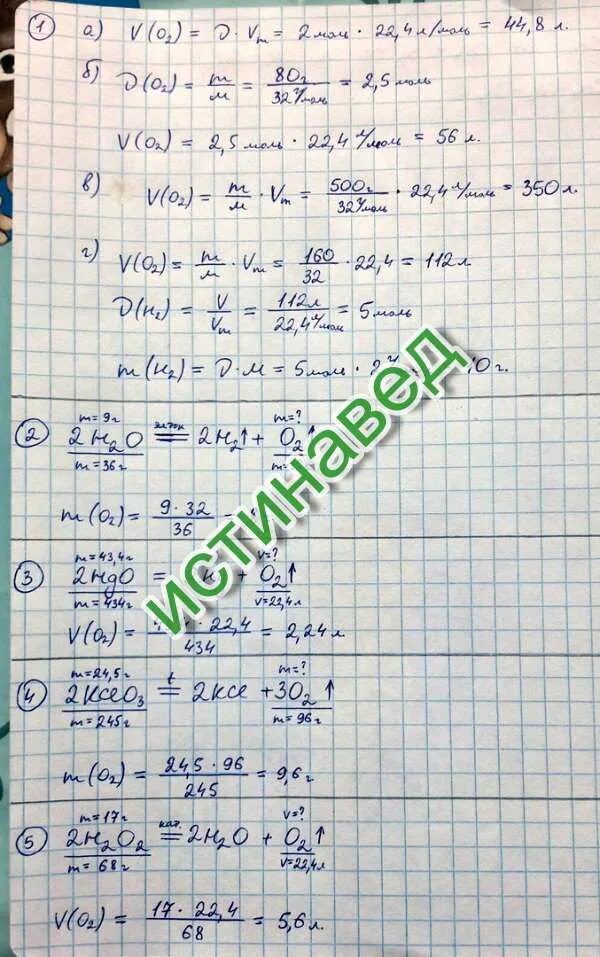 1 а) V(O₂) = ν · Vm = 2 моль · 22,4 л/моль = 44,8 л.
б) ν(O₂) = m/м = 80г/32 г/моль = 2,5 моль
V(O₂) = 2,5 моль · 22,4 л/моль = 56 л.
в) V(O₂) = m/м · Vm = 500г/32 г/моль · 22,4 л/моль = 350 л.
г) V(O₂) = m/м · Vm = 160/32 · 22,4 = 112 л
ν(H₂) = V/Vm = 112 л/22,4 л/моль = 5 моль
m(H₂) = ν · M = 5 моль · 2 г 0 г.
m = 9г m = ?
2 2H₂O эл.ток = 2H₂↑ + O₂↑
m = 36г m =
m(O₂) = 9 · 32/36 =
m = 43,4г V = ?
3 2HgO = + O₂↑
m = 434г V = 22,4л
V(O₂) = · 22,4/434 = 2,24 л
m = 24,5г m = ?
4 2KClO₃ t = 2KCl + 3O₂↑
m = 245г m = 96г
m(O₂) = 24,5 · 96/245 = 9,6г
m = 17г V = ?
5 2H₂O₂ кат. = 2H₂O + O₂↑
m = 68г V = 22,4л
V(O₂) = 17 · 22,4/68 = 5,6 л.
ИСТИНАВЕД